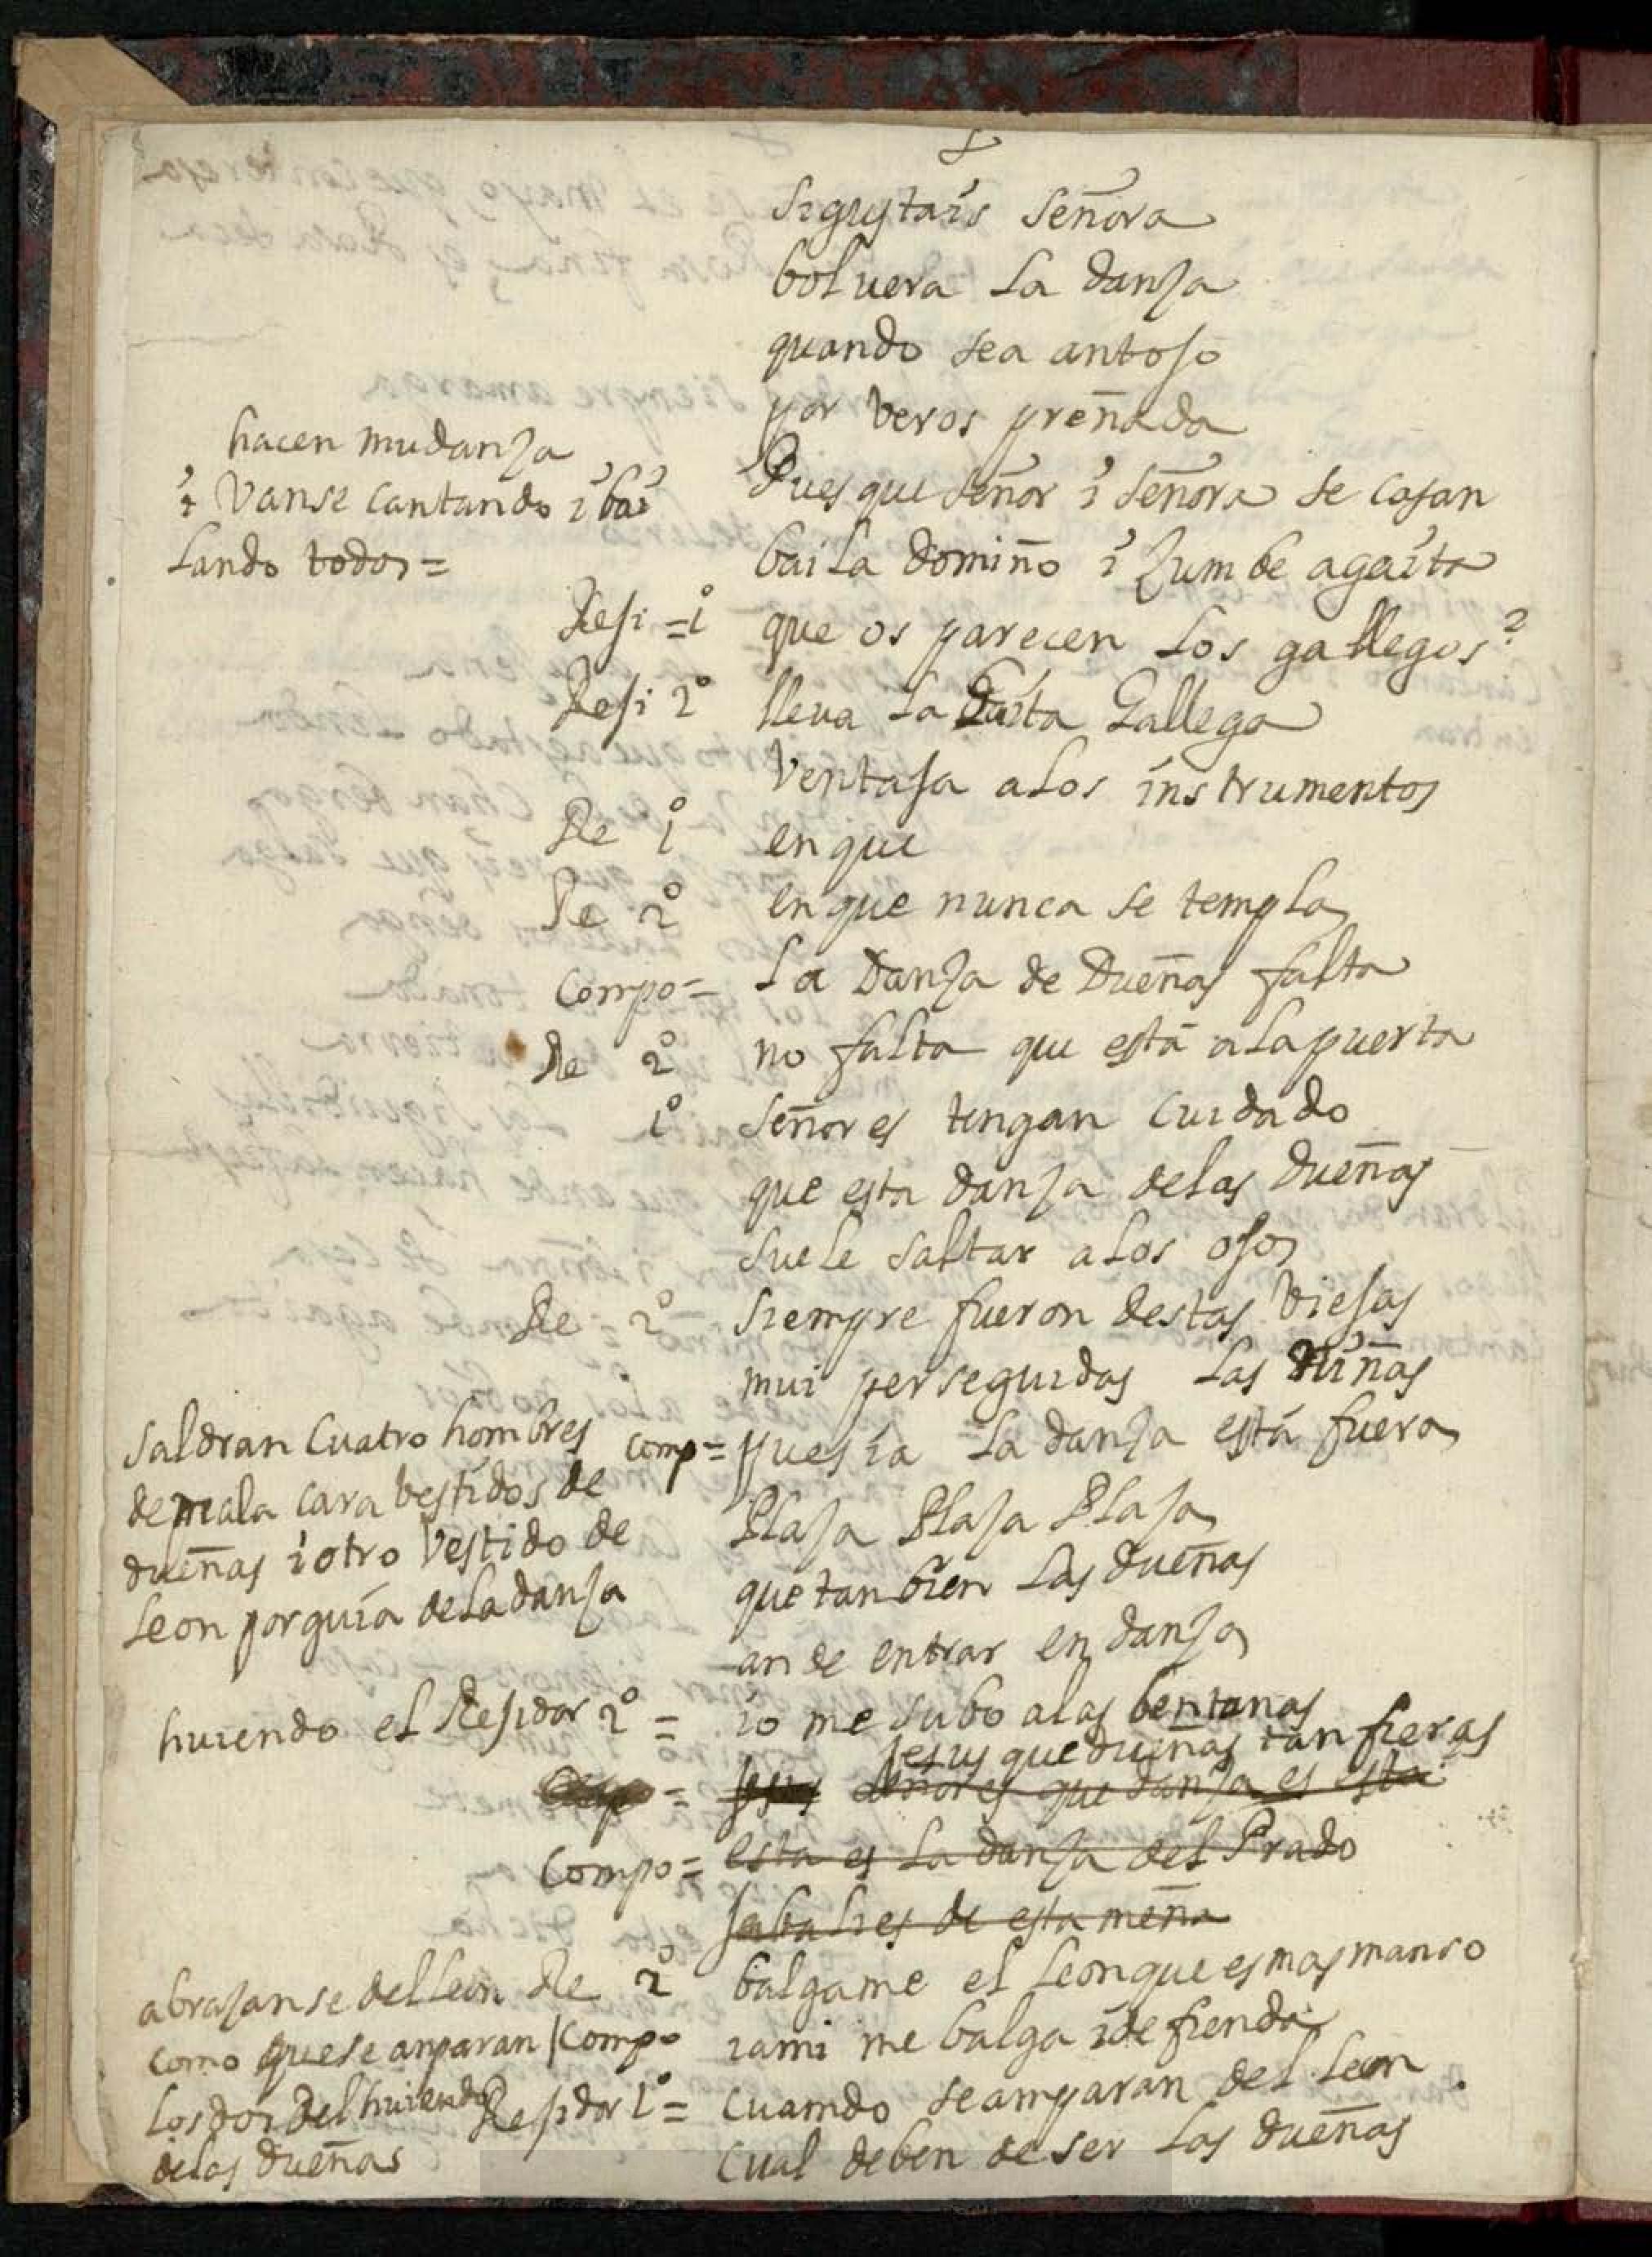 si gustais Señora
boluera la danza
quando sea antojo
por veros preñada
hacen mudanza
i vanse cantando i bai
lando todos =
Pues que Señor i Señora se casan
baila Domiño i zumbe a gaita
Reji = 1º que os parecen los gallegos?
Reji 2º lleua la Gaita Gallega
ventaja a los instrumentos
Re 1º en que
Re 2º en que nunca se templa
Compo = la Danza de Dueñas falta
Re 2º no falta que está a la puerta
1º Señores tengan cuidado
que esta danza de las dueñas
suele saltar a los ojos
Re 2º siempre fueron destas viejas
mui perseguidas las niñas
Saldran Cuatro hombres
de mala cara bestidos de
dueñas i otro vestido de
leon por guia de la danza
Comp = pues ia la danza está fuera
Plaza Plaza Plaza
que tanbien las dueñas
an de entrar en danza
huiendo el Rejidor 2º = io me subo a las bentanas
Jesus que dueñas tan fieras
Jesus señores que danza es esta
Compo = esta es la danza del Prado
jabalies de estameña
abrazanse del leon
como que se anparan
los dos del huiendo
de las dueñas
Re 2º balgame el leon que es mas manso
Compo i a mi me balga i defienda
Rejidor 1º = cuamdo se amparan del leon
cual deben de ser las dueñas